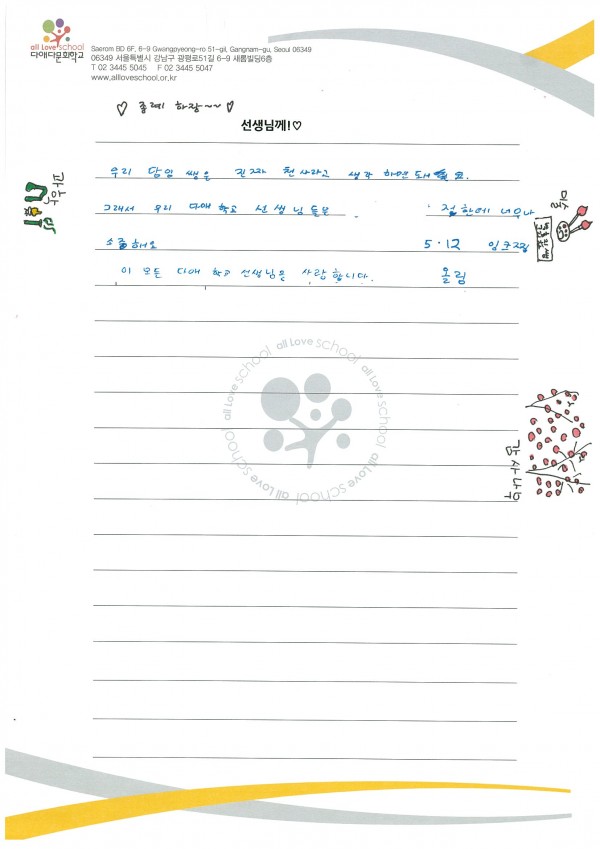 all Love school
다애다문화학교
Saerom BD 6F, 6-9 Gwangpyeong-ro 51-gil, Gangnam-gu, Seoul 06349
06349 서울특별시 강남구 광평로51길 6-9 새롬빌딩6층
T 02 3445 5045 F 02 3445 5047
www.allloveschool.or.kr
♡ 종례 하장~~ ♡
선생님께!♡
우리 담임 쌤은 진짜 천사라고 생각 하면 돼 요.
그래서 우리 다애 학교 선생님들은 너무나
소중해요 5.12
이 모든 다애 학교 선생님은 사랑합니다. 올림
미술
감사나무
all Love school all Love school all Love school all Love school